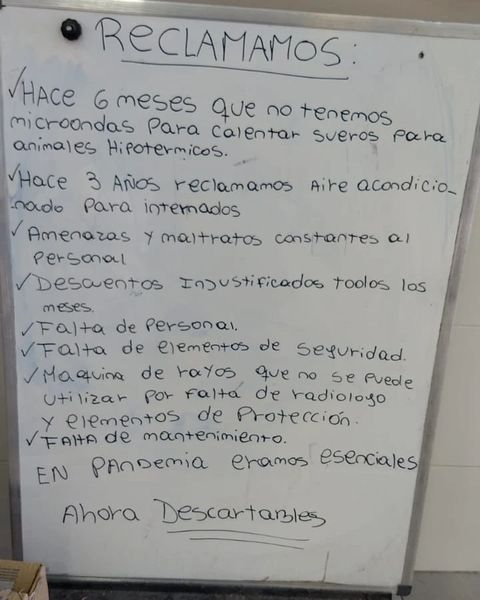 RECLAMAMOS:
✓HACE 6 meses que no tenemos
microondas para calentar sueros para
animales Hipotermicos.
✓Hace 3 Años reclamamos Aire acondicio-
nado para internados
✓Amenazas y maltratos constantes al
personal
✓Descuentos Injustificados todos los
meses.
✓Falta de personal.
✓Falta de elementos de seguridad.
✓Maquina de rayos que no se puede
utilizar por falta de radiologo
y elementos de Protección.
✓FAlta de mantenimiento.
EN PANdemia eramos esenciales
Ahora Descartables